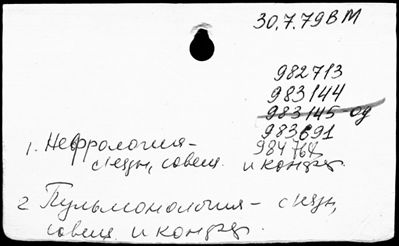 30.7.79ВМ
982713
983144
983145-од
983691
984764
1. Нефрология-
съезды, совещ. и конфер.
2 Пульмонология - съезды,
совещ. и конфер.